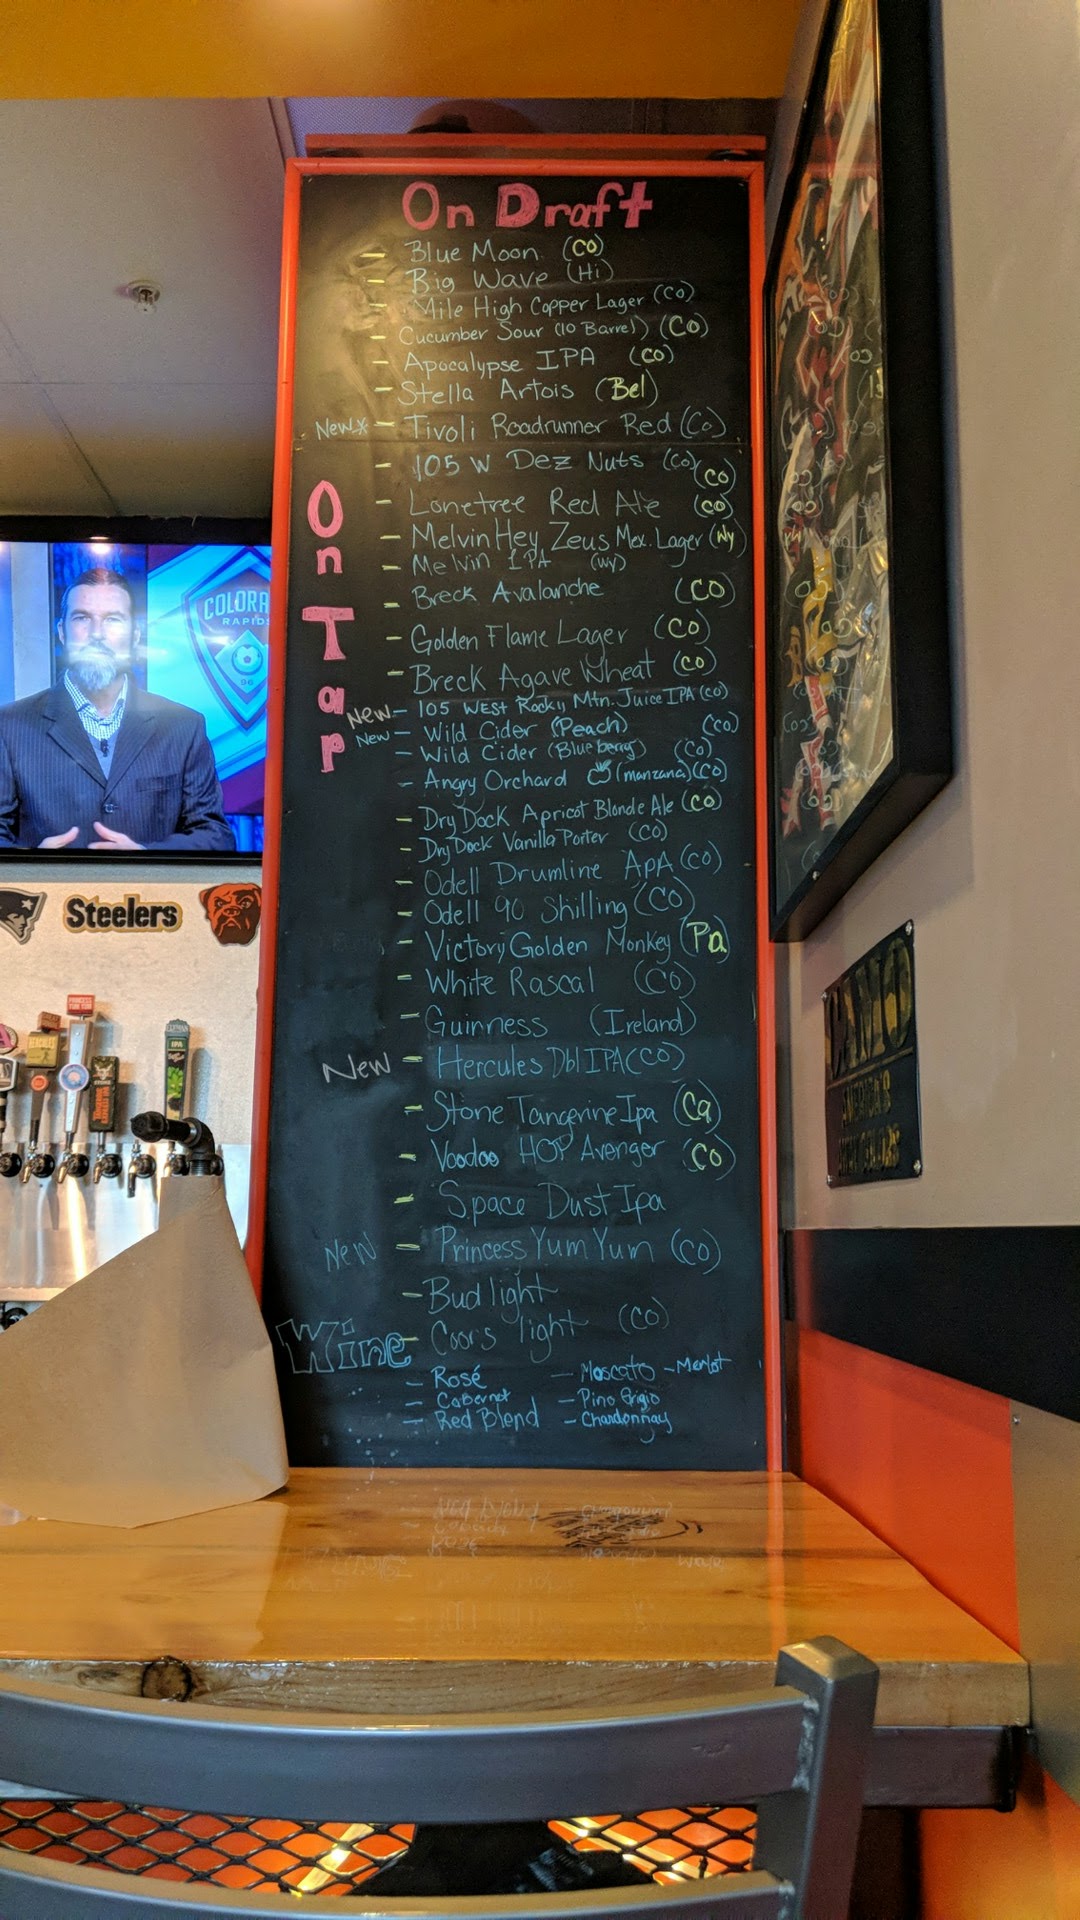 On Draft
- Blue Moon (CO)
- Big Wave (Hi)
- Mile High Copper Lager (CO)
- Cucumber Sour (10 Barrel) (CO)
- Apocalypse IPA (CO)
- Stella Artois (Bel)
New * - Tivoli Roadrunner Red (Co)
- 105 W Dez Nuts (Co)
On Tap
- Lonetree Red Ale (CO) (CO)
- Melvin Hey Zeus Mex. Lager (Wy)
- Melvin IPA (wy)
- Breck Avalanche (CO)
- Golden Flame Lager (CO)
- Breck Agave Wheat (CO)
New - 105 West Rocky Mtn. Juice IPA (CO)
New - Wild Cider (Peach) (CO)
- Wild Cider (Blueberry) (CO)
- Angry Orchard (manzana) (CO)
- Dry Dock Apricot Blonde Ale (CO)
- Dry Dock Vanilla Porter (CO)
- Odell Drumline APA (CO)
- Odell 90 Shilling (CO)
- Victory Golden Monkey (Pa)
- White Rascal (CO)
- Guinness (Ireland)
New - Hercules Dbl IPA (CO)
- Stone Tangerine Ipa (Ca)
- Voodoo HOP Avenger (CO)
- Space Dust Ipa
New - Princess Yum Yum (CO)
- Bud light
- Coors light (CO)
Wine
- Rosé - Moscato - Merlot
- Cabernet - Pino Grigio
- Red Blend - Chardonnay
COLORA
RAPIDS
96
Steelers
PRINCESS YUM YUM
HERCULES
IPA
CAMO
AMERICA'S